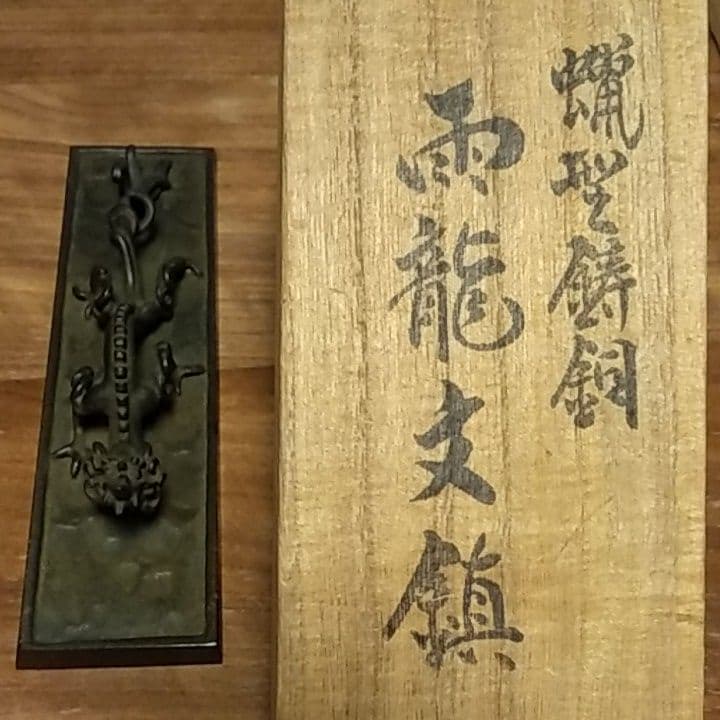 蠟型鋳銅
雨龍文鎮